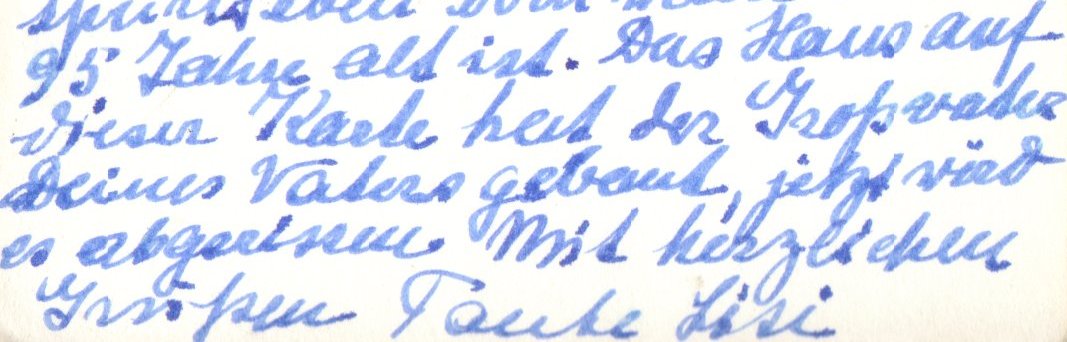 95 Jahre alt ist. Das Haus auf
dieser Karte hat der Großvater
Deines Vaters gebaut, jetzt wird
es abgerissen. Mit herzlichen
Grüßen Tante Lisi